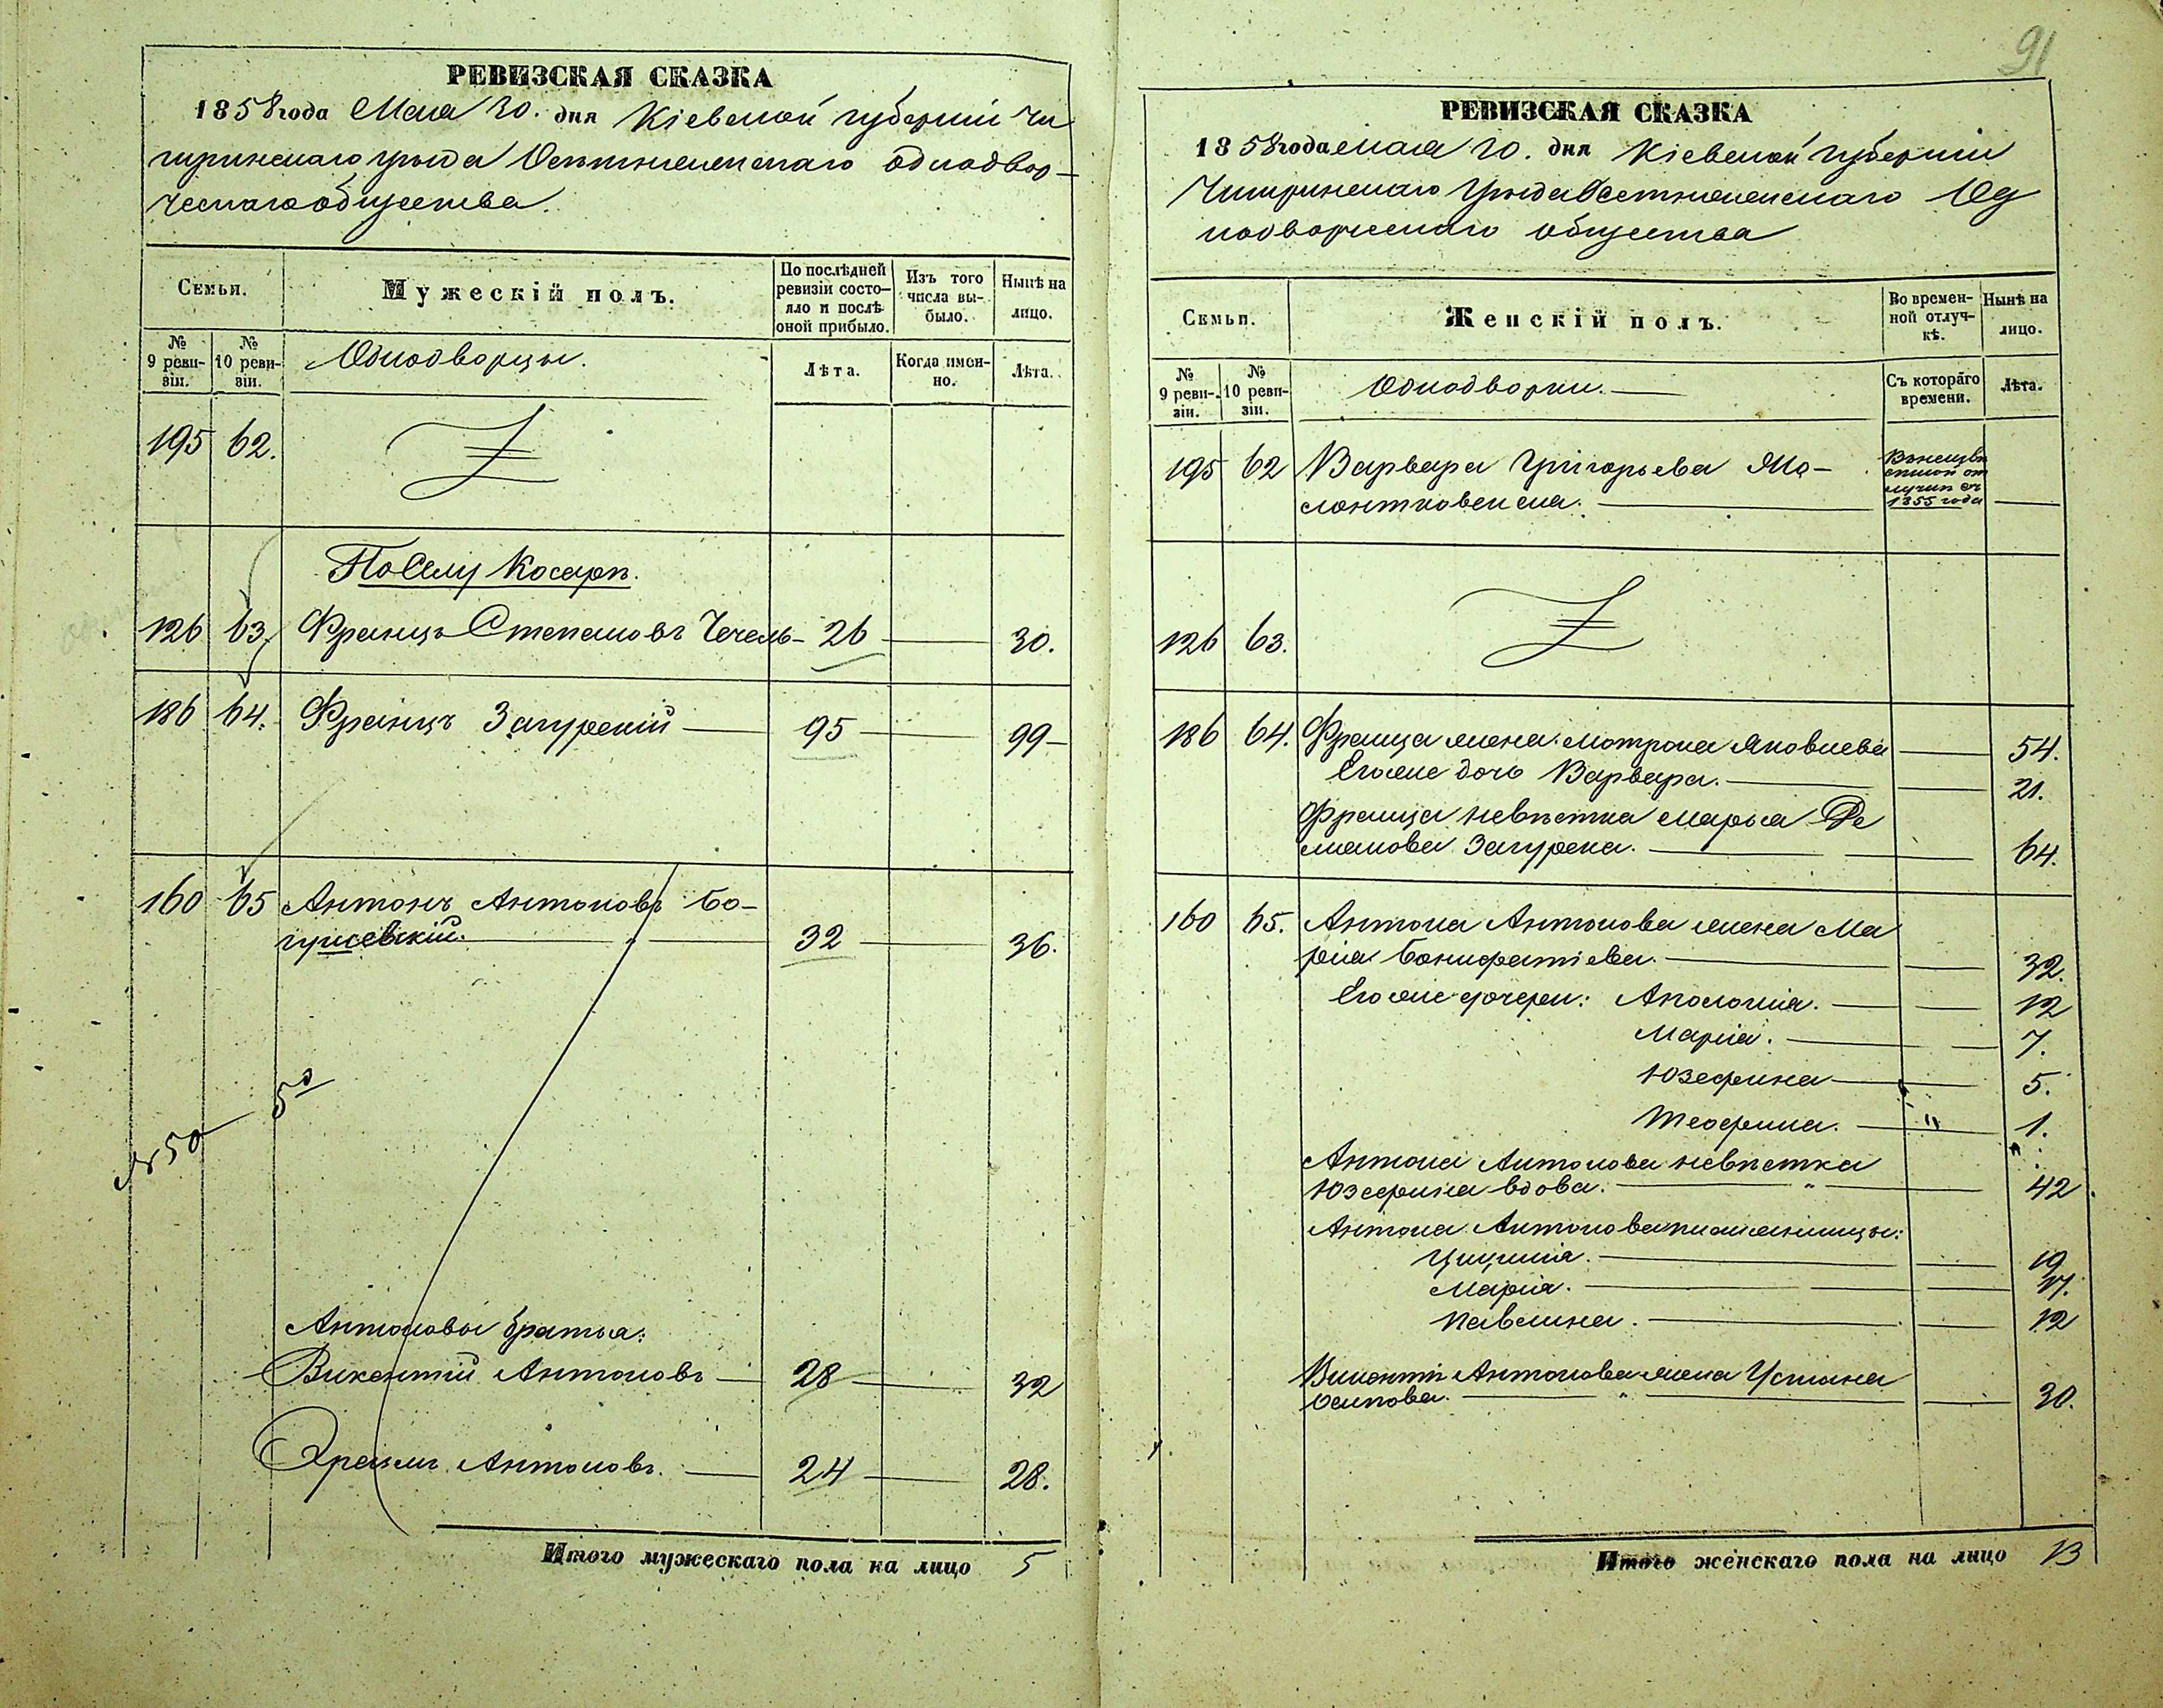 91
РЕВИЗСКАЯ СКАЗКА
1858 года Мая 20. дня Кіевской губерніи Чи
гиринскаго уѣзда Оситняжскаго однодвор-
ческаго общества.
Семьи.
Мужескій полъ.
По послѣдней ревизіи состо-яло и послѣ оной прибыло.
Изъ того числа вы-было.
Нынѣ на лицо.
№ 9 реви-зіи.
№ 10 реви-зіи.
Однодворцы.
Лѣта.
Когда имен-но.
Лѣта.
195 62.
По селу Косари.
126 63. Францъ Степановъ Чечель- 26 30.
186 64. Францъ Загурскій 95 99
160 65 Антонъ Антоновъ Бо-
гушевскій. 32 36.
Антоновы братья:
Викентій Антоновъ 28 32
Эразмъ Антоновъ. 24 28.
Итого мужескаго пола на лицо 5
РЕВИЗСКАЯ СКАЗКА
1858 года мая 20. дня Кіевской губерніи
Чигиринскаго уѣзда Оситняжскаго Од
нодворческаго общества
Семьи.
Женскій полъ.
Во времен-ной отлуч-кѣ.
Нынѣ на лицо.
№ 9 реви-зіи.
№ 10 реви-зіи.
Однодворки.
Съ котораго времени.
Лѣта.
195 62 Варвара Григорьева
1855 года
126 63.
186 64. Франца жена Мотрона Яковлева 54.
Его же дочь Варвара. 21.
Франца невѣстка Марья Де
мянова Загурска. 64.
160 65. Антона Антонова жена Ма
рія Бонифатіева. 32.
Его же дочери: Аполонія. 12
Марія. 7.
Юзефина 5.
Теофила. 1.
Антона Антонова невѣстка
Юзефина вдова. 42
Антона Антонова племянницы:
19
Марія. 17.
Павлина. 12
Викентія Антонова жена Устина
Осипова. 30.
Итого женскаго пола на лицо 13